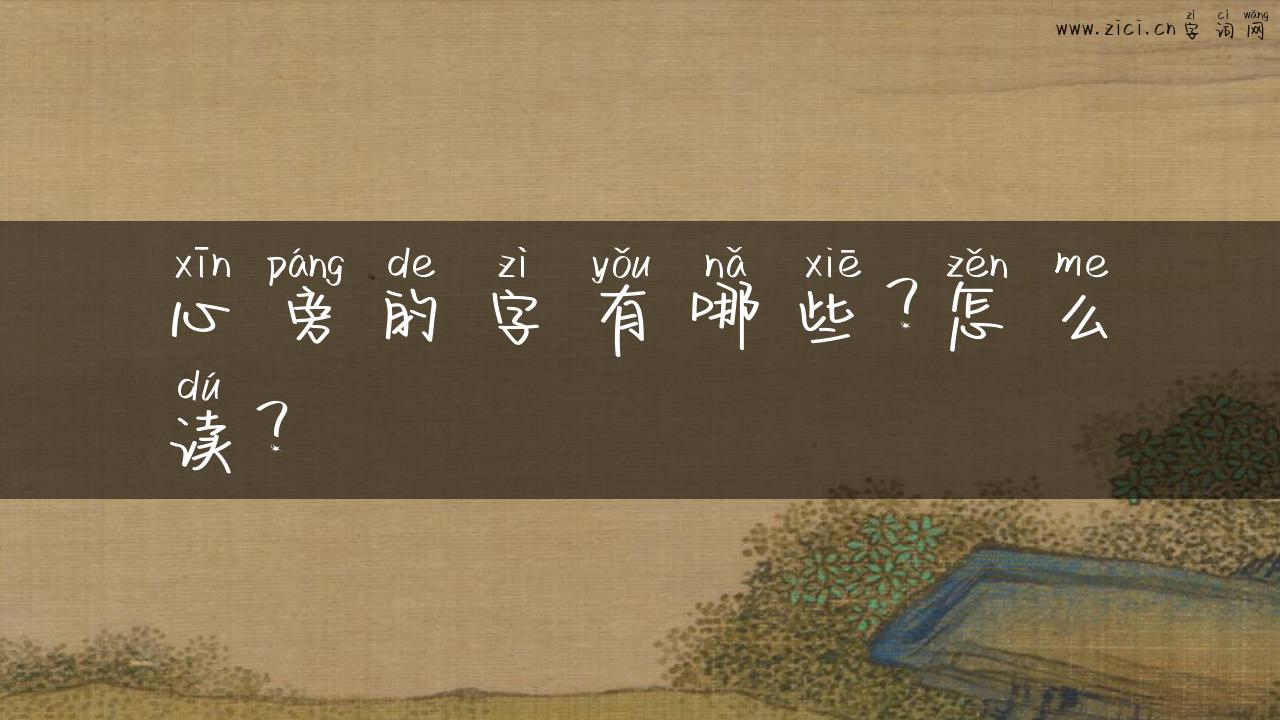 zì cí wǎng
www.zici.cn字词网
xīn páng de zì yǒu nǎ xiē zěn me
心旁的字有哪些？怎么
dú
读？